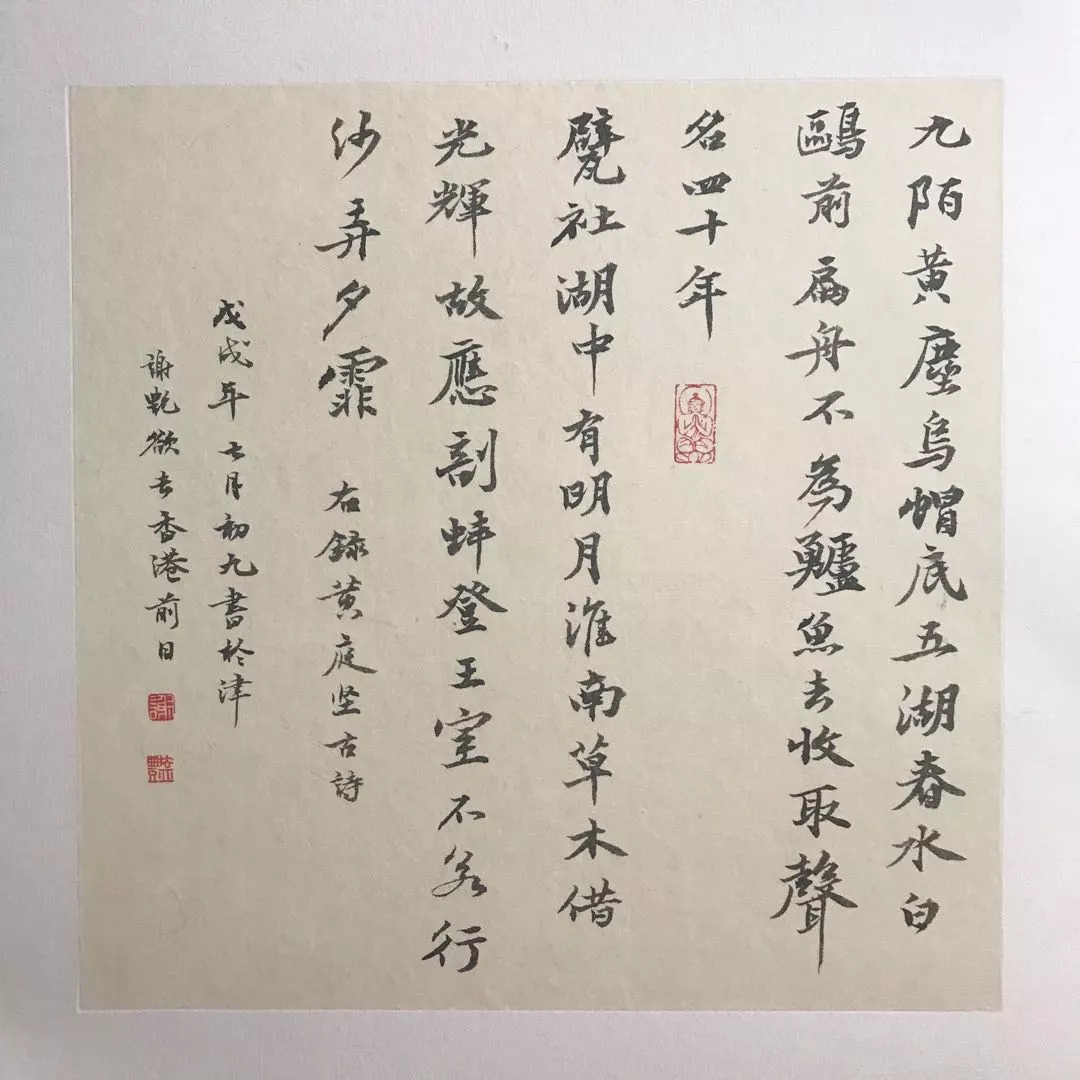 九陌黃塵烏帽底五湖春水白
鷗前扁舟不為鱸魚去收取聲
名四十年
甓社湖中有明月淮南草木借
光輝故應剖蚌登王室不若行
沙弄夕霏 右錄黃庭坚古詩
戊戌年七月初九書於津
謝乾欲去香港前日
謝